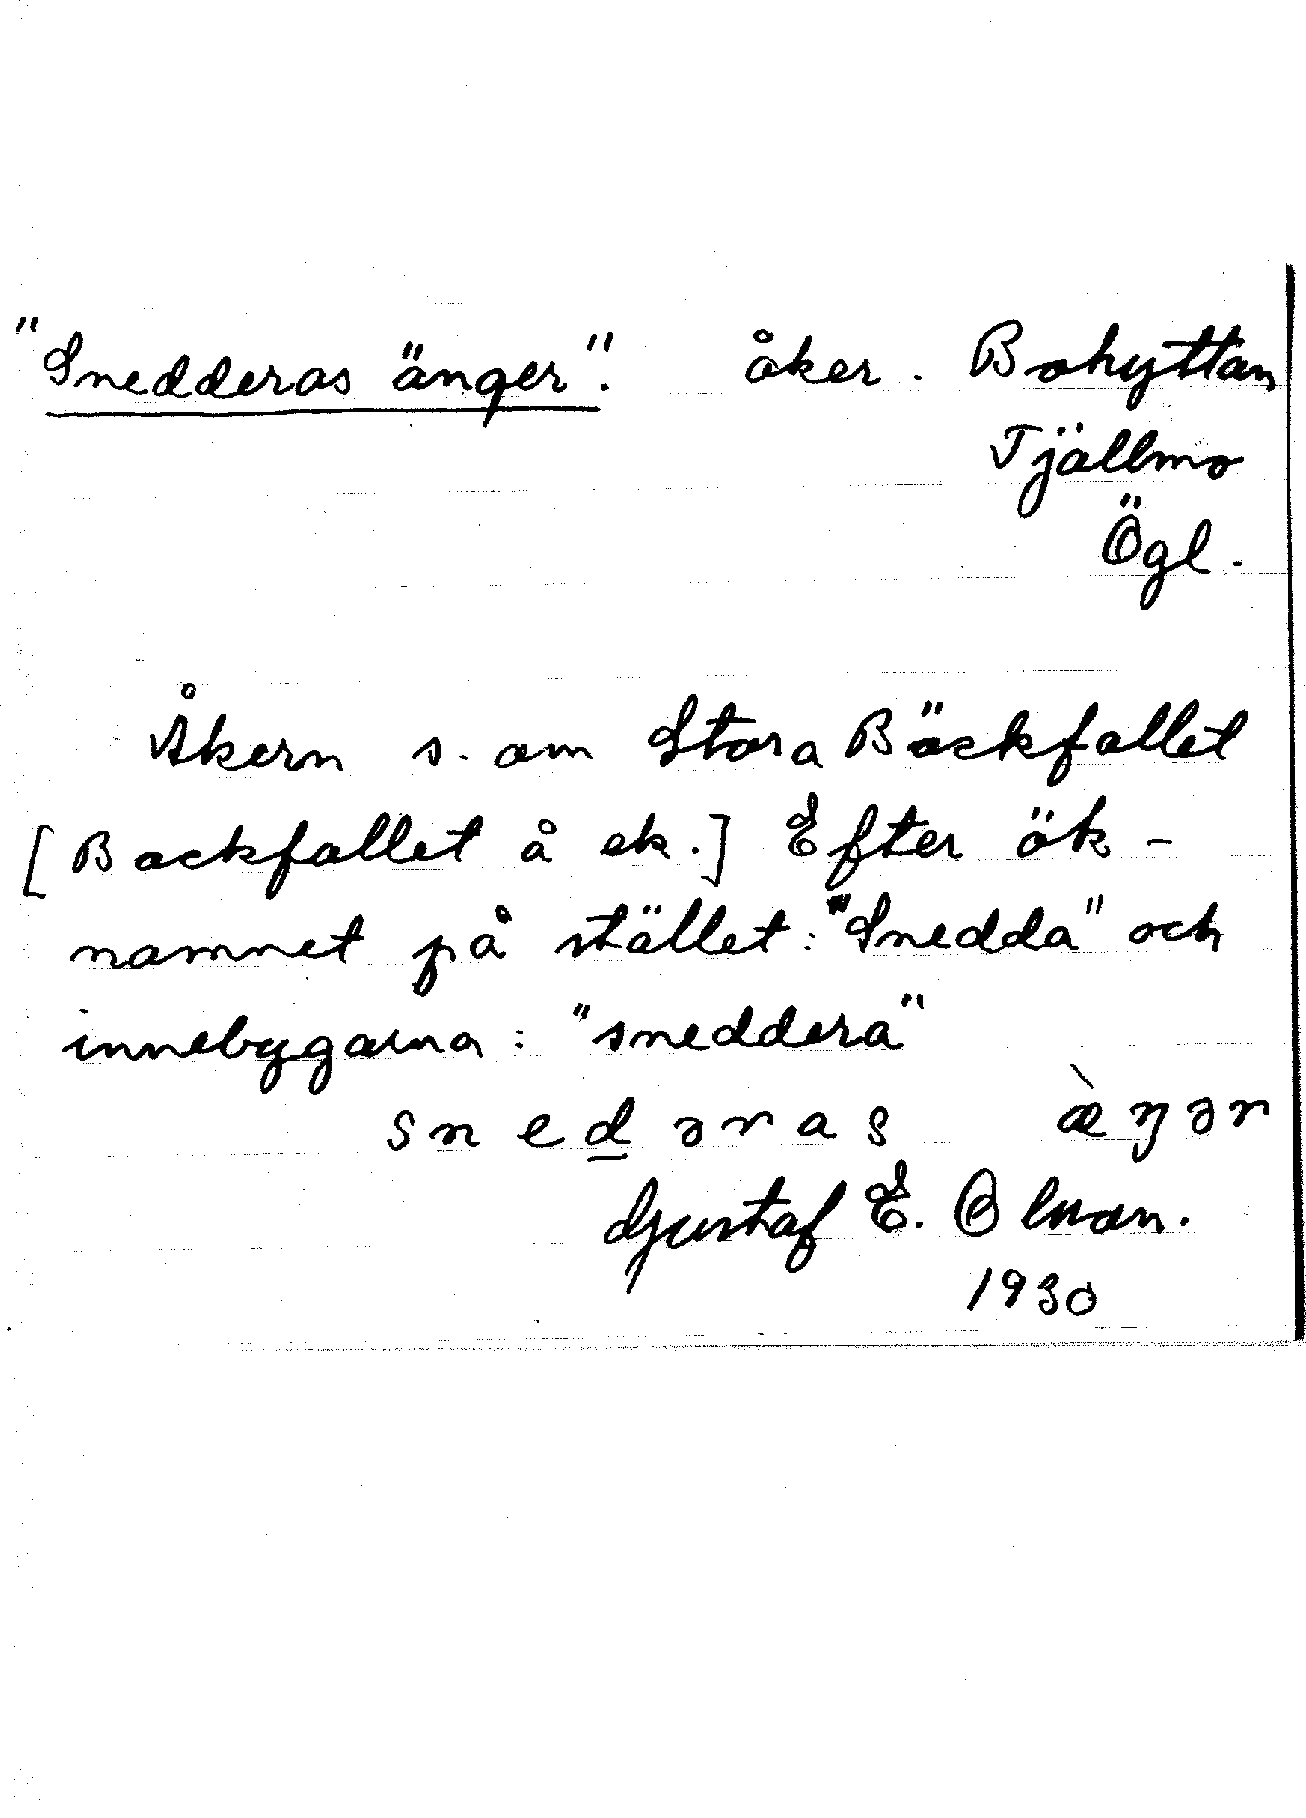 "Snedderas änger". åker. Bohyttan
Tjällmo
Ögl.
Åkern s. om Stora Bäckfallet
[Backfallet å ek.] Efter ök-
namnet på stället: "Snedda" och
innebygarna: "sneddera"
sned̲əras æ̀ŋər
Gustaf E. Olman.
1930